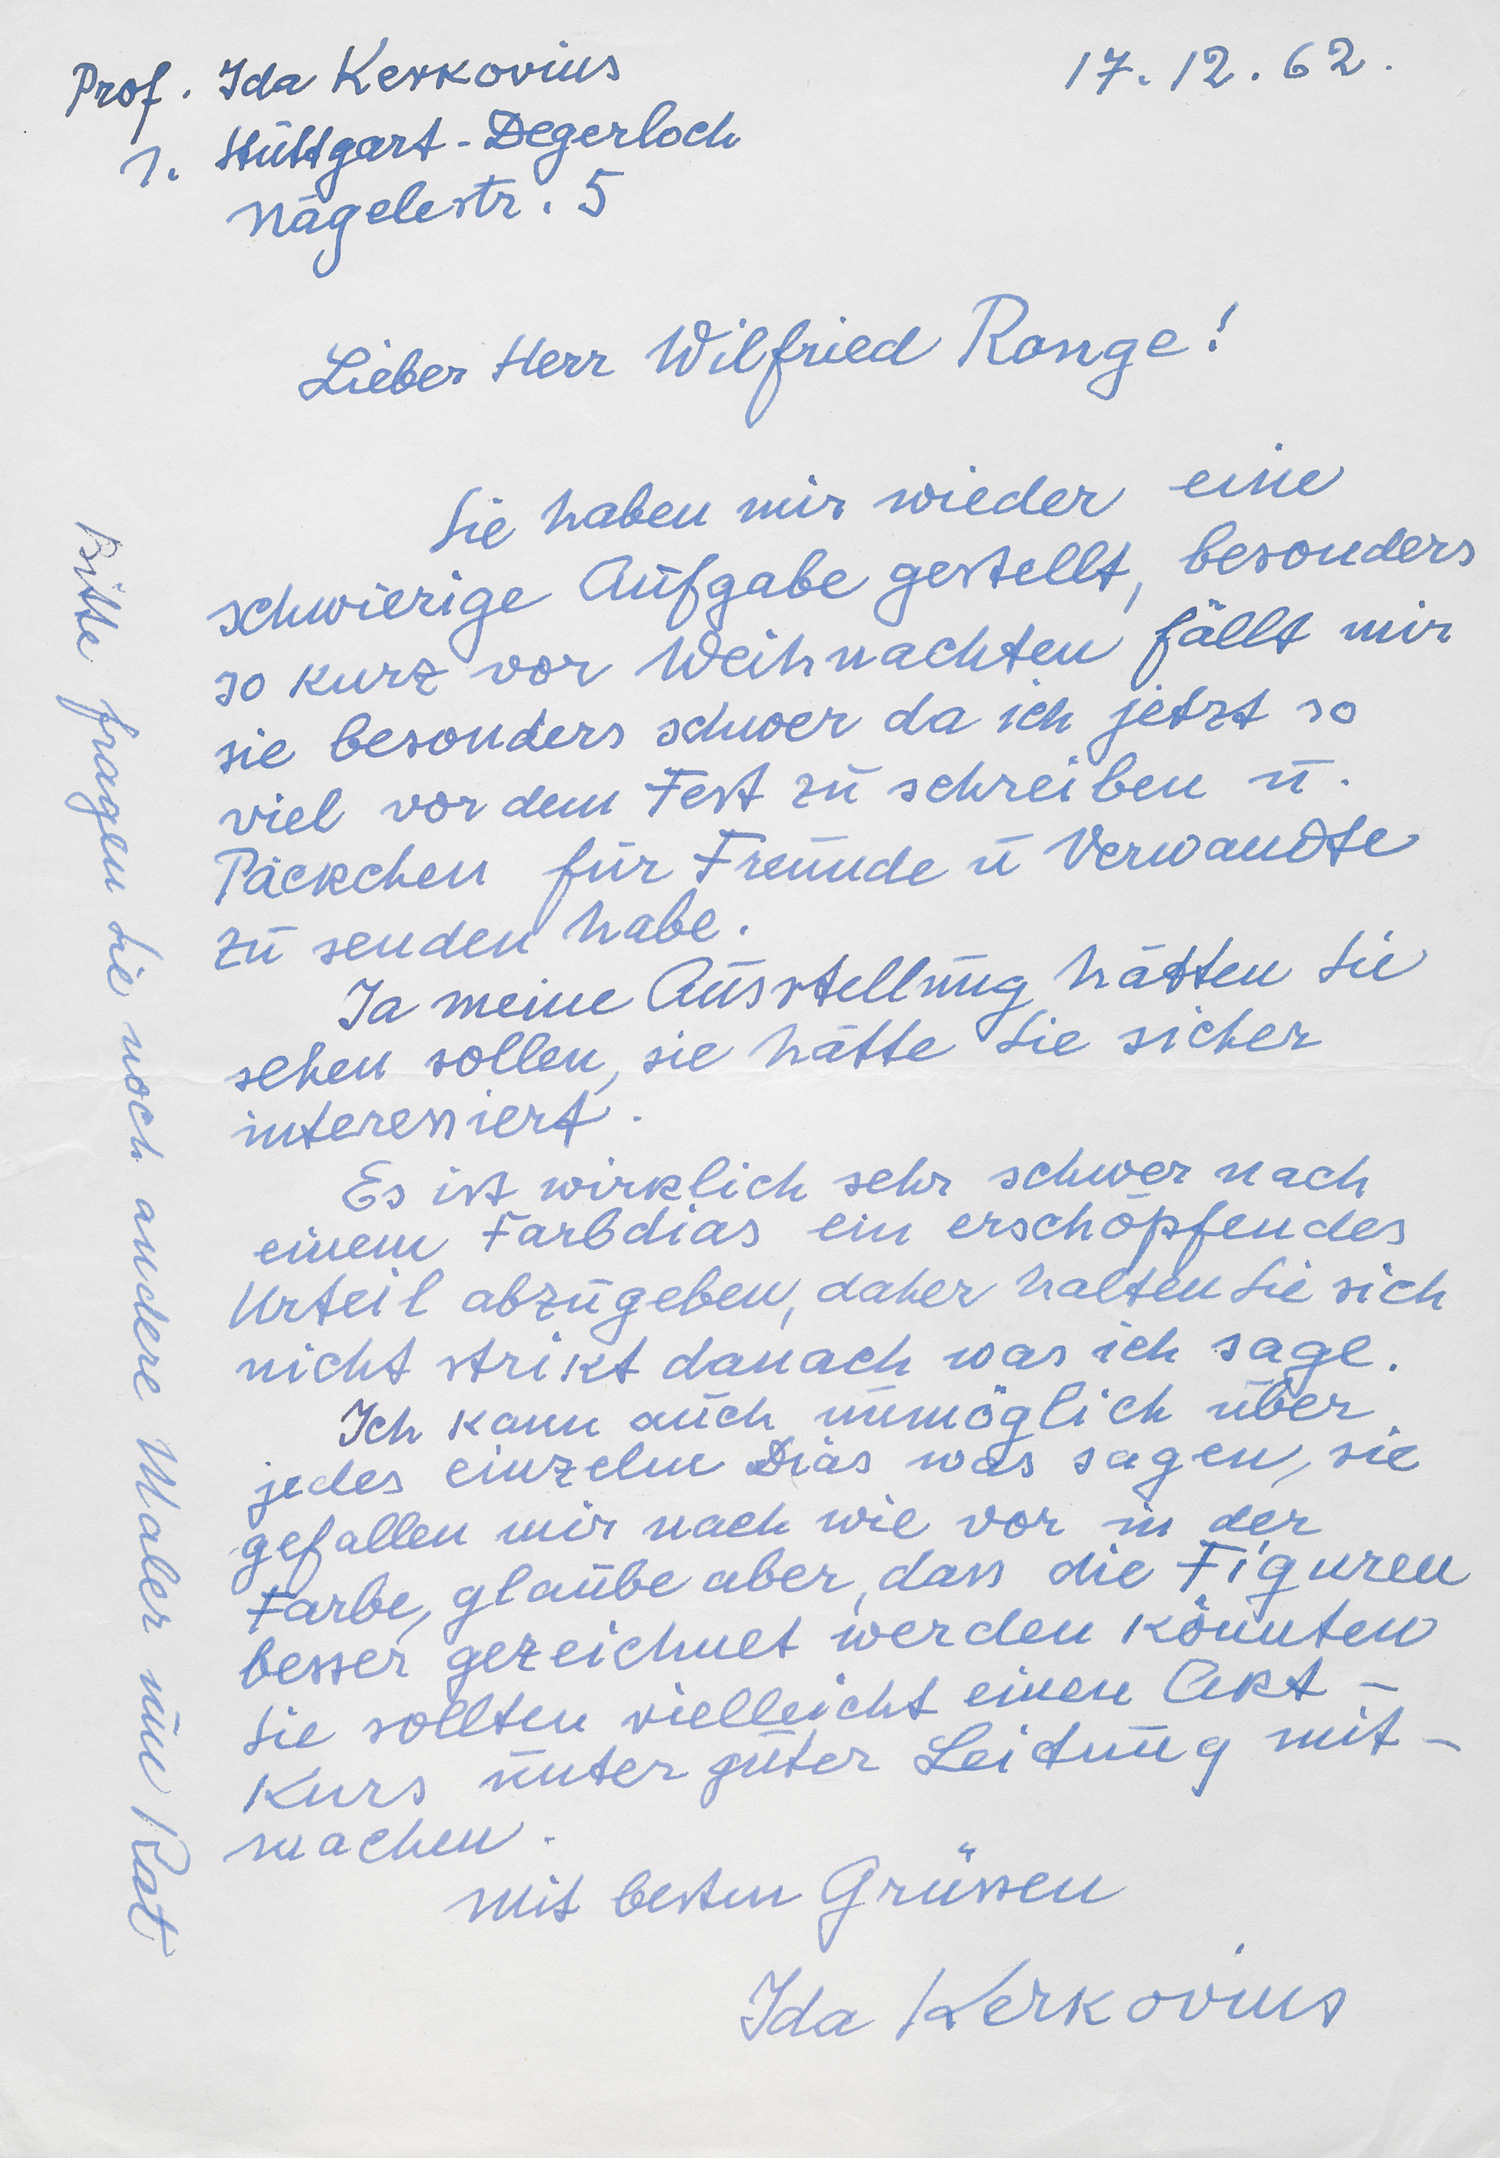 Prof. Ida Kerkovius
17.12.62.
1. Stuttgart-Degerloch
Nägelestr. 5
Lieber Herr Wilfried Range!
Sie haben mir wieder eine
schwierige Aufgabe gestellt, besonders
so kurz vor Weihnachten fällt mir
sie besonders schwer da ich jetzt so
viel vor dem Fest zu schreiben u.
Päckchen für Freunde u Verwandte
zu senden habe.
Ja meine Ausstellung hätten Sie
sehen sollen, sie hätte Sie sicher
interessiert.
Es ist wirklich sehr schwer nach
einem Farbdias ein erschöpfendes
Urteil abzugeben, daher halten Sie sich
nicht strikt danach was ich sage.
Ich kann auch unmöglich über
jedes einzelne Dias was sagen, sie
gefallen mir nach wie vor in der
Farbe, glaube aber, dass die Figuren
besser gezeichnet werden könnten
Sie sollten vielleicht einen Akt-
Kurs unter guter Leitung mit-
machen.
Mit besten Grüssen
Ida Kerkovius
Bitte fragen Sie noch andere Maler um Rat